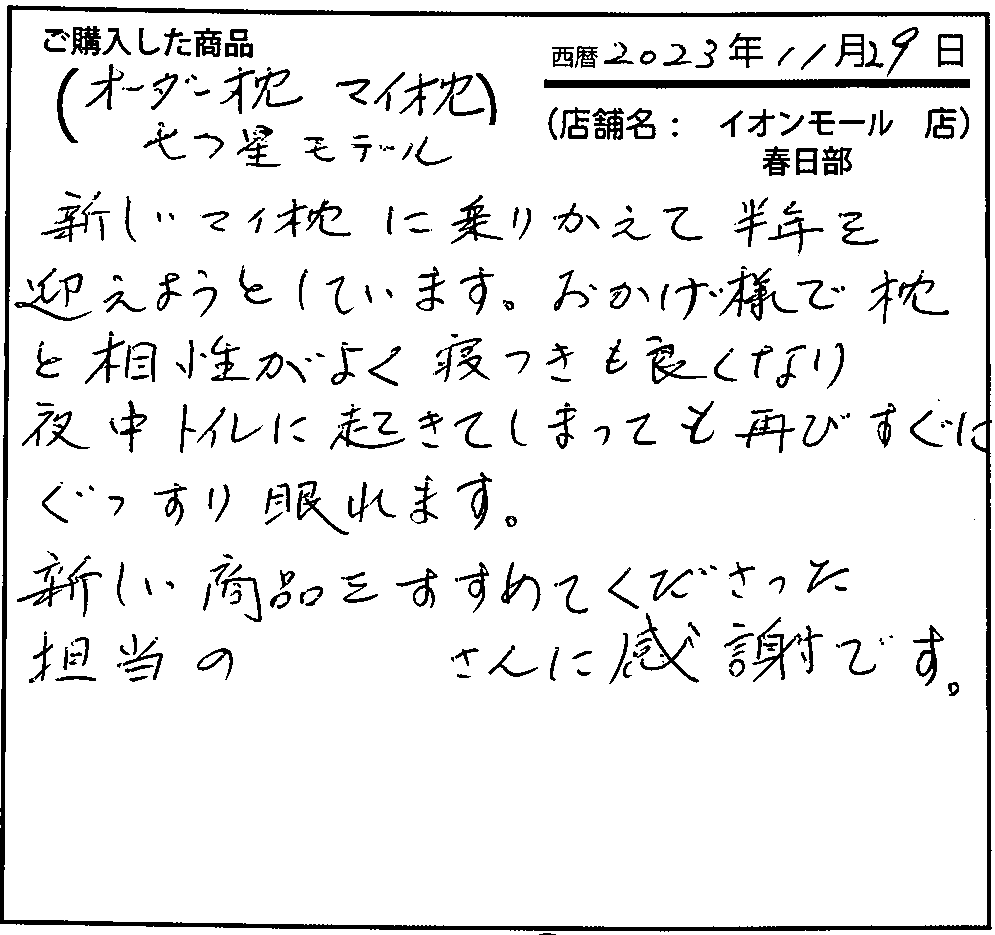 ご購入した商品
西暦 2023年 11月29日
(オーダー枕 マイ枕)
七つ星モデル
(店舗名： イオンモール 店)
春日部
新しいマイ枕に乗りかえて半年を
迎えようとしています。おかげ様で枕
と相性がよく寝つきも良くなり
夜中トイレに起きてしまっても再びすぐに
ぐっすり眠れます。
新しい商品をすすめてくださった
担当の さんに感謝です。